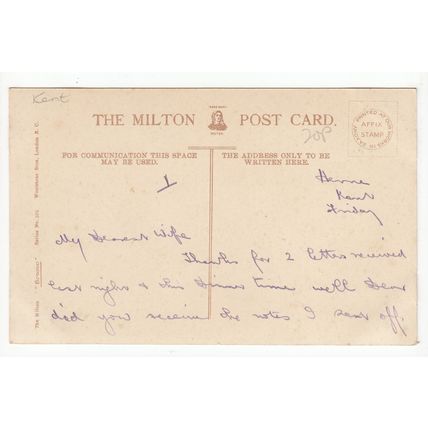 Kent
THE MILTON POST CARD.
TRADE MARK
MILTON
20P
PRINTED AT OUR WORKS IN SAXONY
AFFIX
STAMP
FOR COMMUNICATION THIS SPACE
MAY BE USED.
THE ADDRESS ONLY TO BE
WRITTEN HERE.
1
Herne
Kent
Friday
My Dearest Wife
Thanks for 2 letters received
last night & this Dinner time well Dear
did you receive the notes I sent off.
Woolstone Bros., London E.C.
Series No.
The Milton